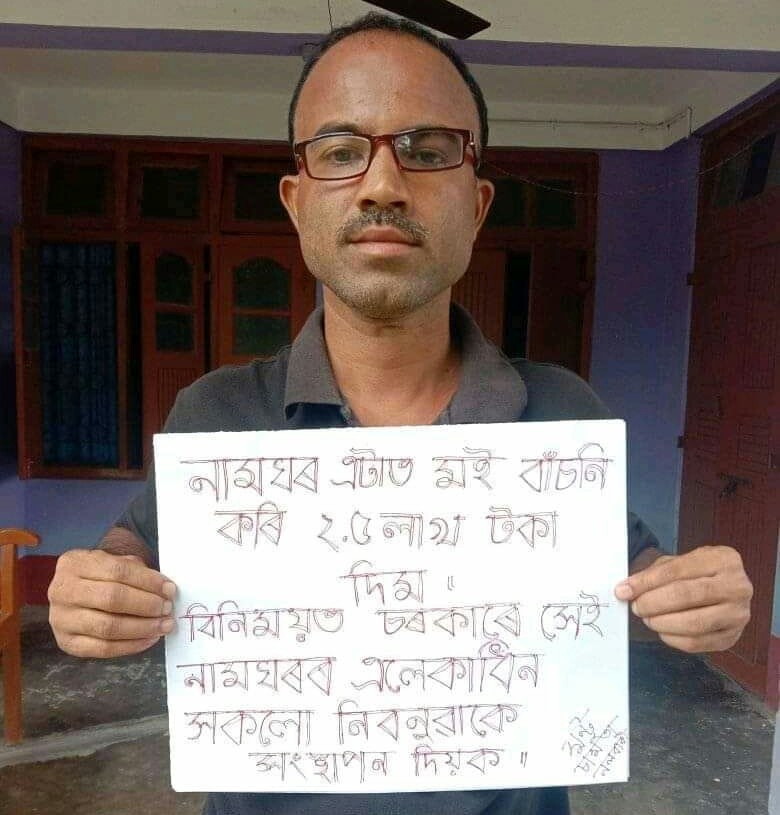 নামঘৰ এটাত মই বাঁচনি
কৰি ২.৫ লাখ টকা
দিম ॥
বিনিময়ত চৰকাৰে সেই
নামঘৰৰ এলেকাধিন
সকলো নিবনুৱাকে
সংস্থাপন দিয়ক ॥